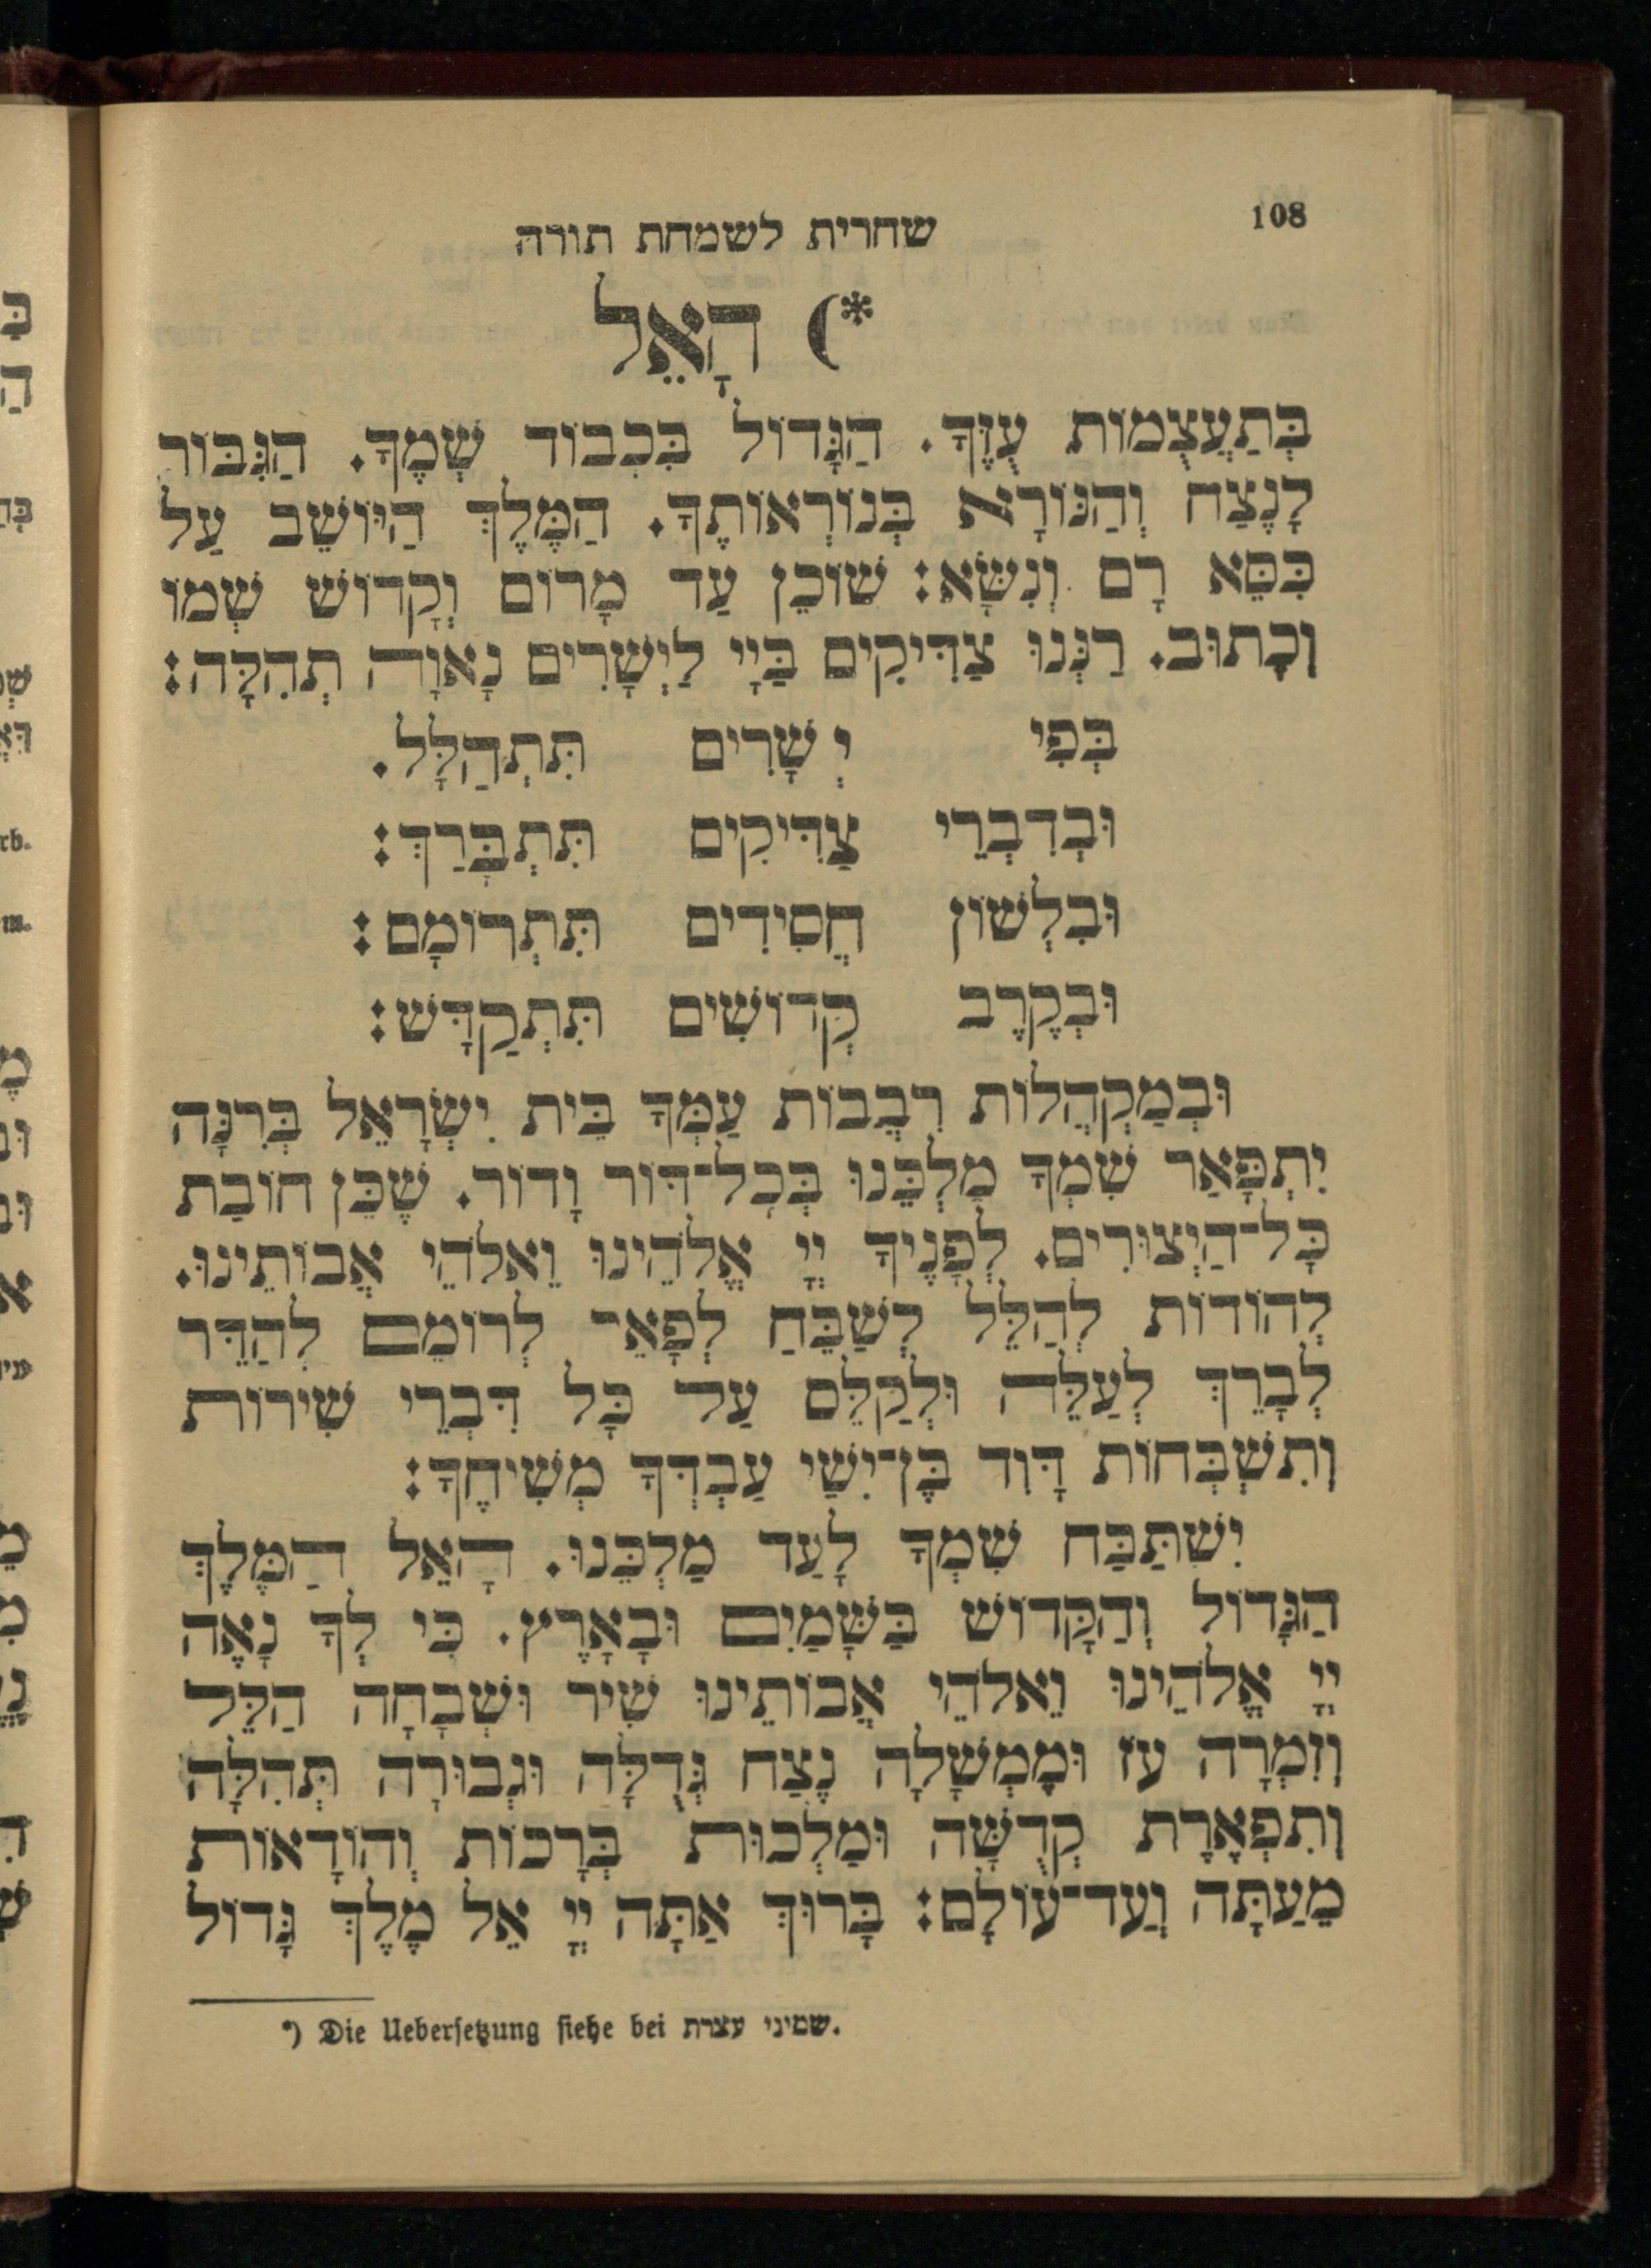 108
שחרית לשמחת תורה
*) הָאֵל
בְּתַעֲצְמוֹת עֻזֶּךָ. הַגָּדוֹל בִּכְבוֹד שְׁמֶךָ. הַגִּבּוֹר
לָנֶצַח וְהַנּוֹרָא בְּנוֹרְאוֹתֶךָ. הַמֶּלֶךְ הַיּוֹשֵׁב עַל
כִּסֵּא רָם וְנִשָּׂא: שׁוֹכֵן עַד מָרוֹם וְקָדוֹשׁ שְׁמוֹ
וְכָתוּב. רַנְּנוּ צַדִּיקִים בַּיְיָ לַיְשָׁרִים נָאוָה תְהִלָּה:
בְּפִי יְשָׁרִים תִּתְהַלָּל.
וּבְדִבְרֵי צַדִּיקִים תִּתְבָּרַךְ:
וּבִלְשׁוֹן חֲסִידִים תִּתְרוֹמָם:
וּבְקֶרֶב קְדוֹשִׁים תִּתְקַדָּשׁ:
וּבְמַקְהֲלוֹת רִבֲבוֹת עַמְּךָ בֵּית יִשְׂרָאֵל בְּרִנָּה
יִתְפָּאַר שִׁמְךָ מַלְכֵּנוּ בְּכָל־דּוֹר וָדוֹר. שֶׁכֵּן חוֹבַת
כָּל־הַיְצוּרִים. לְפָנֶיךָ יְיָ אֱלֹהֵינוּ וֵאלֹהֵי אֲבוֹתֵינוּ.
לְהוֹדוֹת לְהַלֵּל לְשַׁבֵּחַ לְפָאֵר לְרוֹמֵם לְהַדֵּר
לְבָרֵךְ לְעַלֵּה וּלְקַלֵּם עַל כָּל דִּבְרֵי שִׁירוֹת
וְתִשְׁבְּחוֹת דָּוִד בֶּן־יִשַׁי עַבְדְּךָ מְשִׁיחֶךָ:
יִשְׁתַּבַּח שִׁמְךָ לָעַד מַלְכֵּנוּ. הָאֵל הַמֶּלֶךְ
הַגָּדוֹל וְהַקָּדוֹשׁ בַּשָּׁמַיִם וּבָאָרֶץ. כִּי לְךָ נָאֶה
יְיָ אֱלֹהֵינוּ וֵאלֹהֵי אֲבוֹתֵינוּ שִׁיר וּשְׁבָחָה הַלֵּל
וְזִמְרָה עֹז וּמֶמְשָׁלָה נֶצַח גְּדֻלָּה וּגְבוּרָה תְּהִלָּה
וְתִפְאֶרֶת קְדֻשָּׁה וּמַלְכוּת בְּרָכוֹת וְהוֹדָאוֹת
מֵעַתָּה וְעַד־עוֹלָם: בָּרוּךְ אַתָּה יְיָ אֵל מֶלֶךְ גָּדוֹל
*) Die Uebersetzung siehe bei שמיני עצרת.